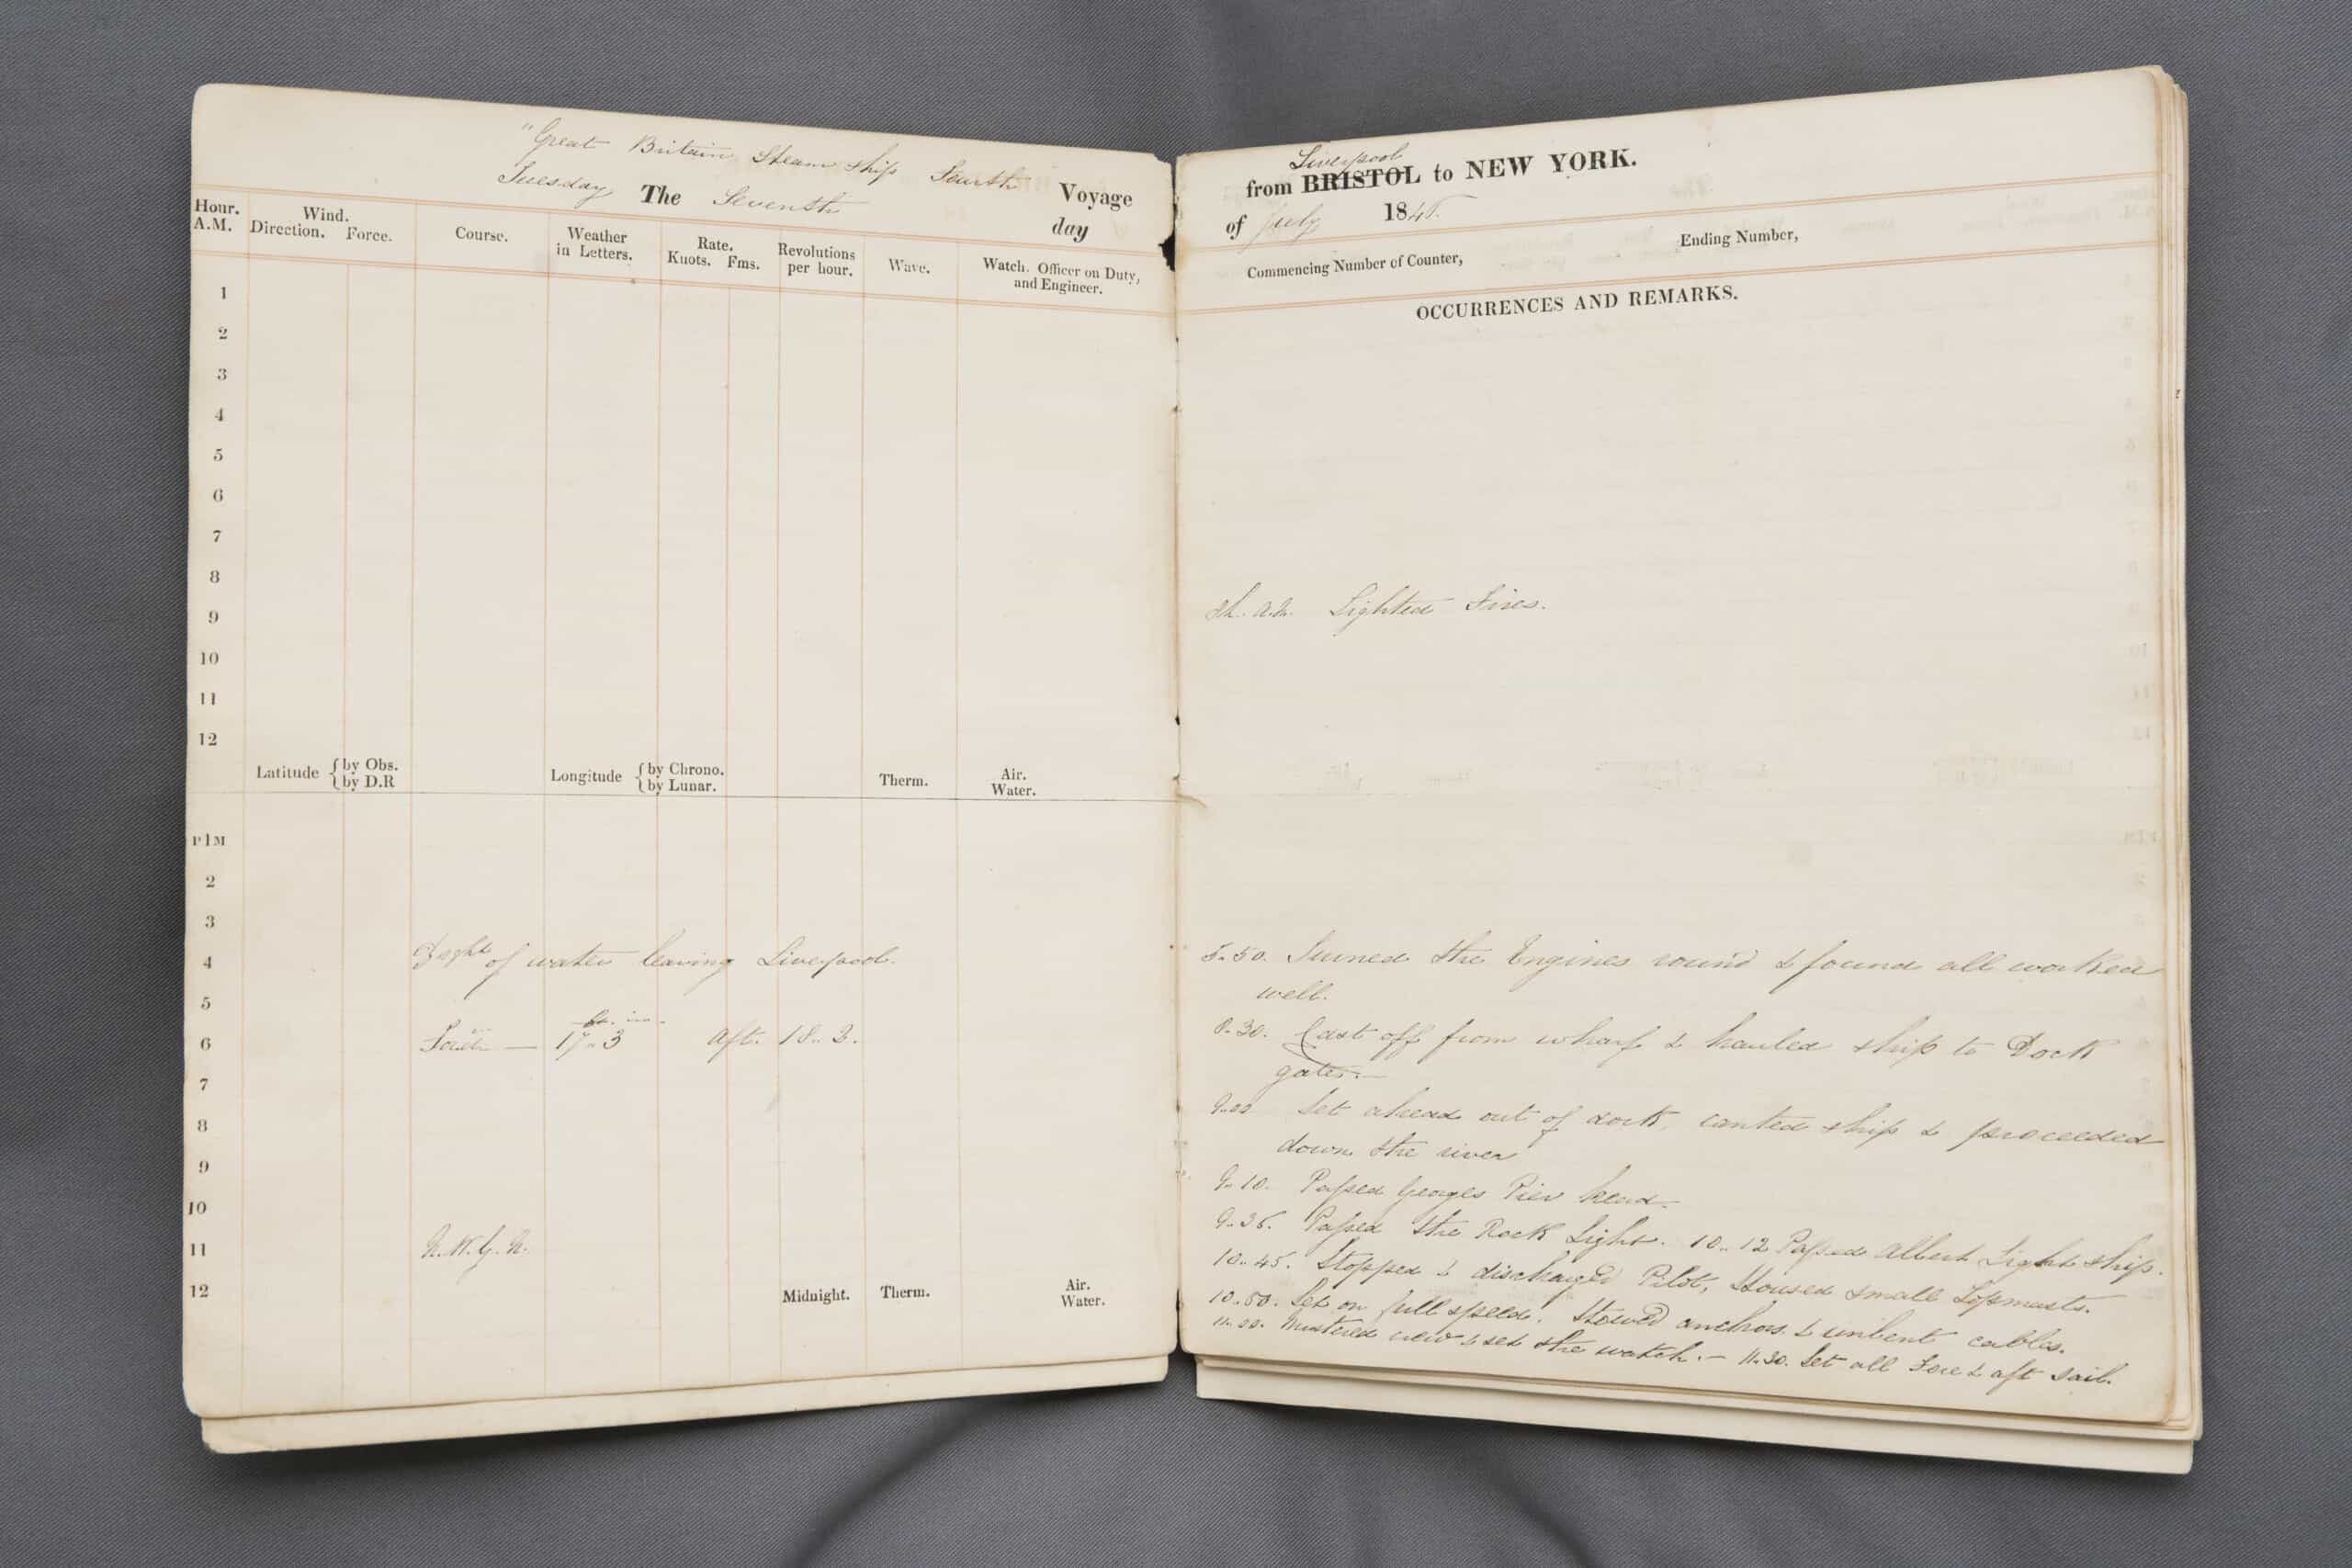 "Great Britain Steam Ship Fourth Voyage
Tuesday The Seventh day
Hour. A.M.
Wind.
Direction. Force.
Course.
Weather
in Letters.
Rate.
Knots. Fms.
Revolutions
per hour.
Wave.
Watch. Officer on Duty,
and Engineer.
1
2
3
4
5
6
7
8
9
10
11
12
Latitude { by Obs.
by D.R
Longitude { by Chrono.
by Lunar.
Therm.
Air.
Water.
P 1 M
2
3
4 of water leaving Liverpool.
5
ft. in.
6 17.. 3 aft. 18.. 2.
7
8
9
10
11
12 Midnight. Therm. Air.
Water.
Liverpool
from BRISTOL to NEW YORK.
of July 184
Commencing Number of Counter, Ending Number,
OCCURRENCES AND REMARKS.
Lighted Fires.
5.50. Turned the Engines round & found all worked
well.
8.30. Cast off from wharf & hauled ship to Dock
gates.—
9.00 Set ahead out of dock, canted ship & proceeded
down the river
9.10. Passed Georges Pier head.—
Passed the Rock Light. 10..12 Passed Albert Light ship.
10..45. Stopped & discharged Pilot, Housed small Topmasts.
10.50. Set on full speed. Stowed anchors & unbent cables.
11.00. Mustered crew & set the watch.— 11.30. Set all Fore & aft sail.